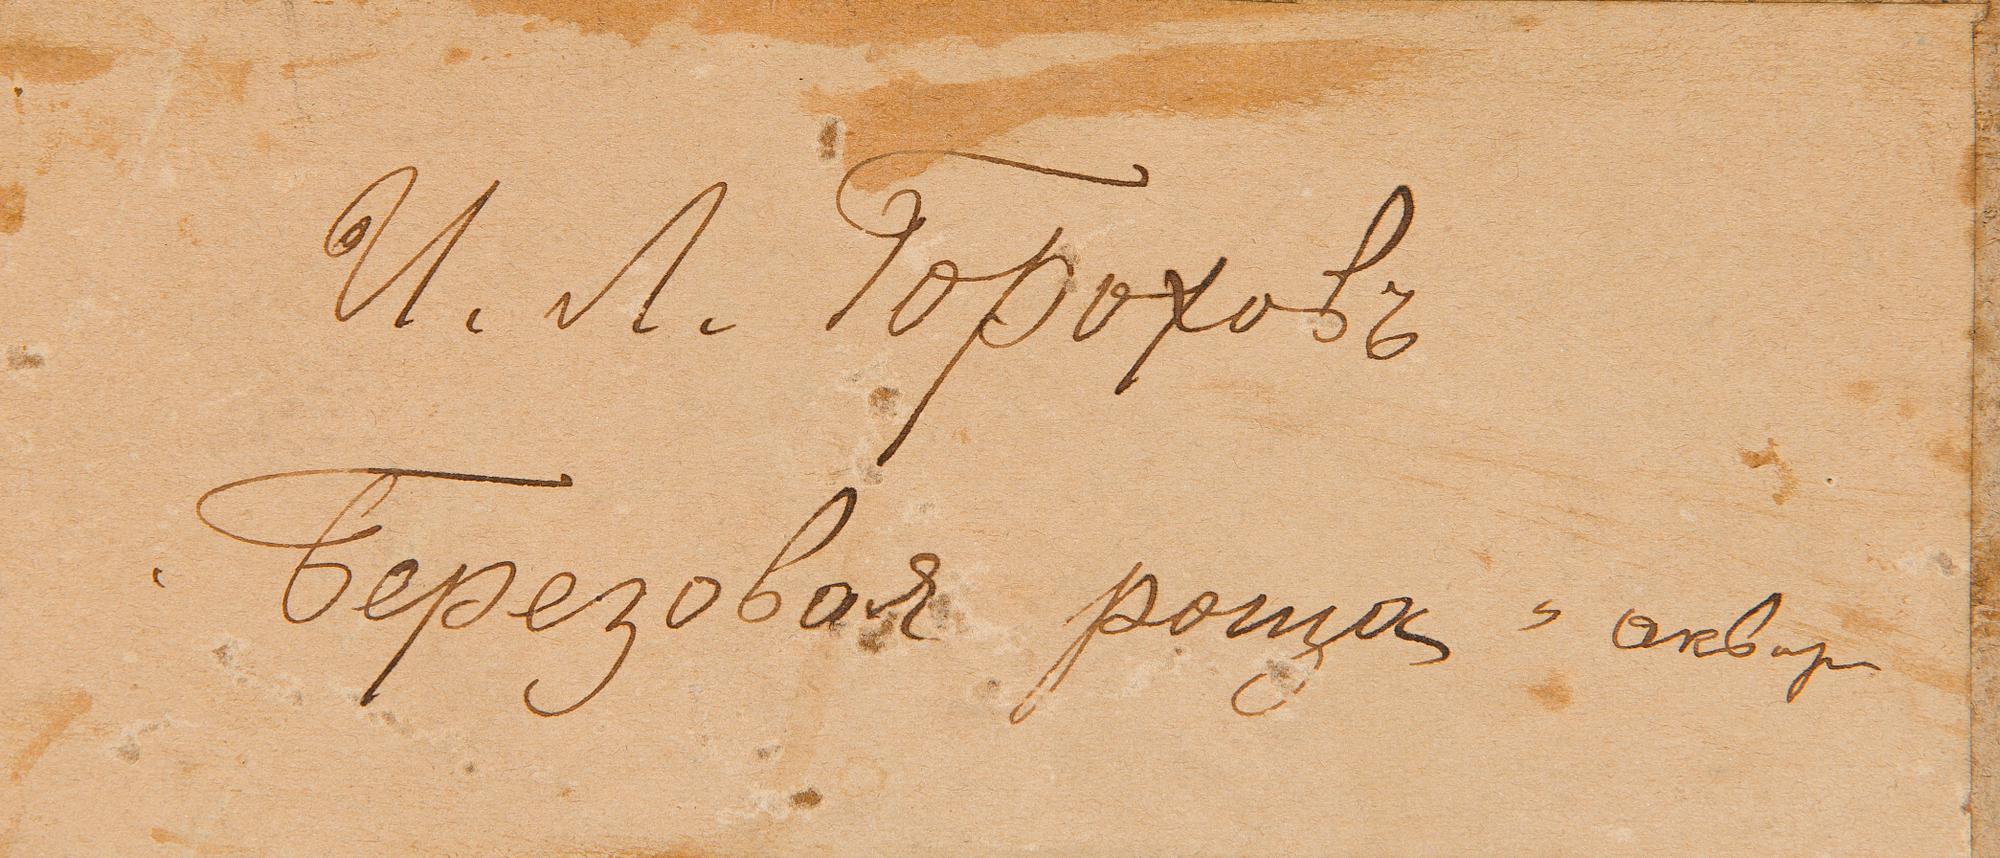 И. Л. Гороховъ
„Березовая роща“ аквар